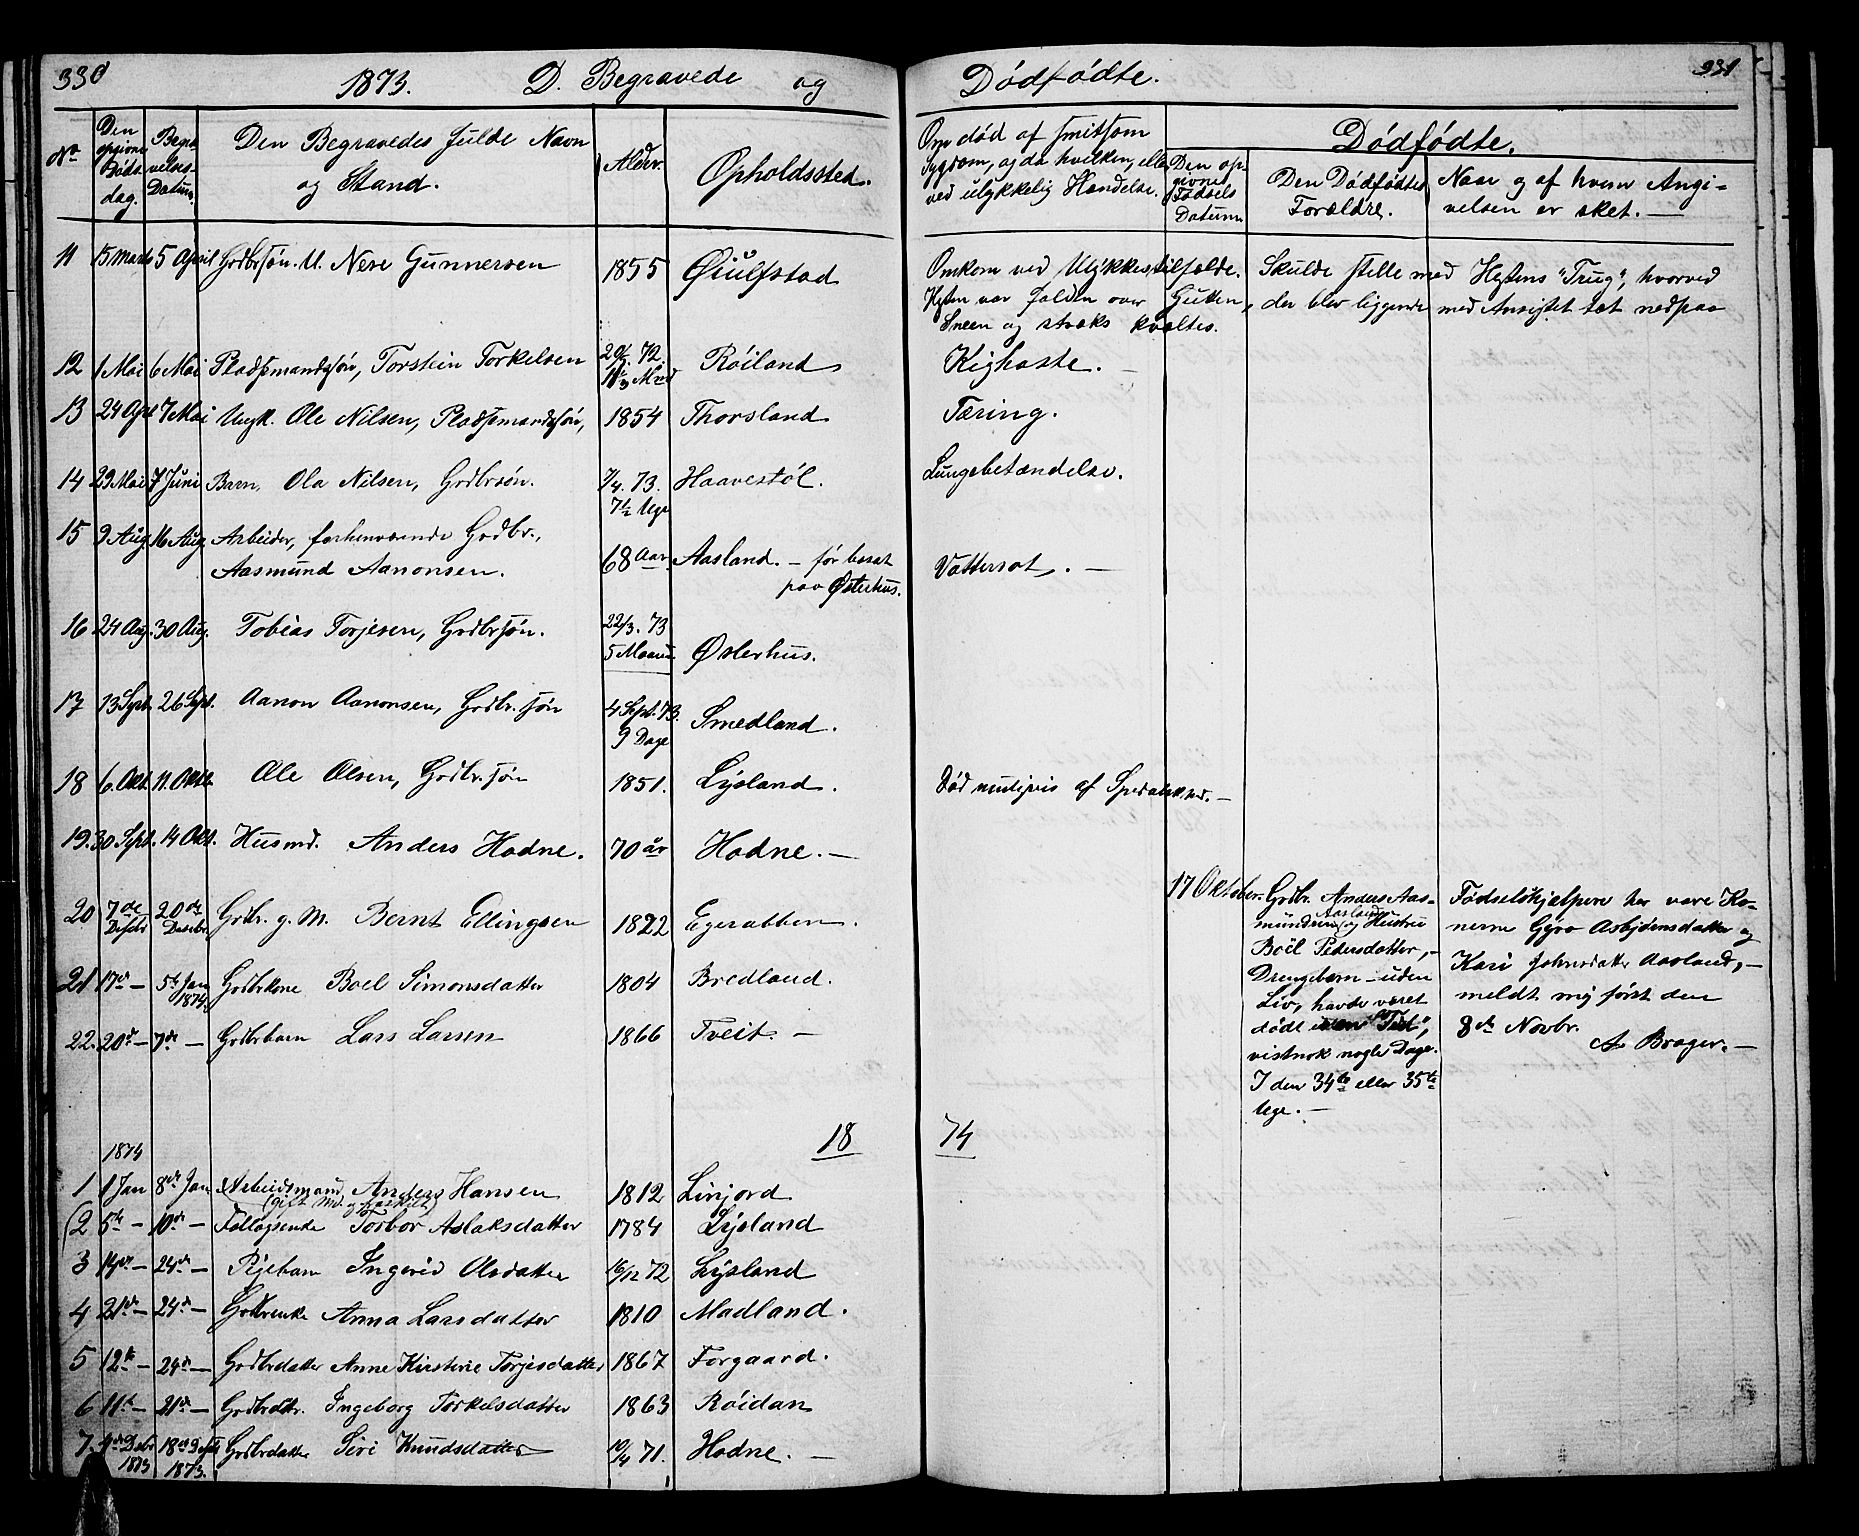 330
1873. D. Begravede og Dødfødte.
331
No
Den opgivne Døds- dag.
Begra- velses- Datum.
Den Begravedes fulde Navn og Stand.
Alder.
Opholdssted.
Om død af smitsom Sygdom, og da hvilken, eller ved ulykkelig Hændelse.
Dødfødte.
Den op- givne Fødsels Datum
Den Dødfødtes Forældre.
Naar og af hvem Angi- velsen er sket. —
11 15 Marts 5 April Grdbrsøn. U. Gunnersen 1855 Øiulfstad Omkom ved Ulykkestilfælde. Skulde stelle med Hestens "Trug", hvorved
Hesten var falden over Gutten, der blev liggende med Ansigtet tæt nedpaa
Sneen og straks kvaltes.
12 1 Mai 6 Mai Pladsmandssøn, Torstein Torkelsen 72. Røiland Kighoste. —
13 24 Apr 7 Mai Ungk. Ole Nilsen, Pladsmandssøn, 1854 Thorsland Tæring.
14 29 Mai 7 Juni Barn, Ola Nilsen, Grdbrsøn. 7/4. 73. Haavestøl. Lungebetændelse.
7½ Uge
15 9 Aug. 16 Aug. Arbeider, forhenværende Grdbr.,
Aasmund Aanonsen. 68 Aar Aasland. — før bosat Vattersot. —
paa Østerhus.
16 24 Aug. 30 Aug. Tobias Torjesen, Grdbrsøn. 22/3. 73
5 Maan Østerhus.
17 13 Sept. 26 Sept. Aanon Aanonsen, Grdbr. søn 4 Sept. 73. Smedland.
9 Dage
18 6. Okt. 11. Okt. Ole Olsen, Grdbr. søn 1851. Lysland. Død af —
19. 30 Sept. 14 Okt. Husmd. Anders Hodne. 70 år Hodne. —
20 7de Decbr 20de Decbr Grdbr. g. M. Bernt Ellingsen 1822 Egerabben
21 17de — 5te Jan 1874 Grdbrkone Boel Simonsdatter 1804 Bredland.
22. 20de — 7de — Grdbrbarn Lars Larsen 1866 Tveit. —
17 Oktober.
Grdbr. Anders Aas-
mundsen Aasland og Hustru
Boel Pedersdatter, —
Drengebarn — uden
Liv, havde været
dødt
vistnok nogle Dage.
I den 34te eller 35te
Uge. —
Fødselshjelpere har være Ko-
nerne Gyro Asbjørnsdatter og
Kari Johnsdatter Aasland, —
meldt mig først den
8de Novbr.
A Brager. —
18 74
1874
1 1 Jan 8de Jan Arbeidsmand Anders Hansen 1812 Linjord
(gift Md.
2 5te — 10de — Torbor Aslaksdatter 1784 Lysland
3 14de — 24de — Pigebarn Ingerid Olsdatter 16/12 72 Lysland
4 21de — 24de — Grdbrenke Anna Larsdatter 1810 Madland.
5 12te — 24de — Grdbrdatter Anne Kirstine Torjesdatter 1867 Forgaard.
6 11te — 21de — Grdbrdtr. Ingeborg Torkelsdatter 1863 Røidan
7. Decbr 1873 18de Decbr 1873. Grdbrdatter Siri Knudsdatter 10/4 71. Hodne. —